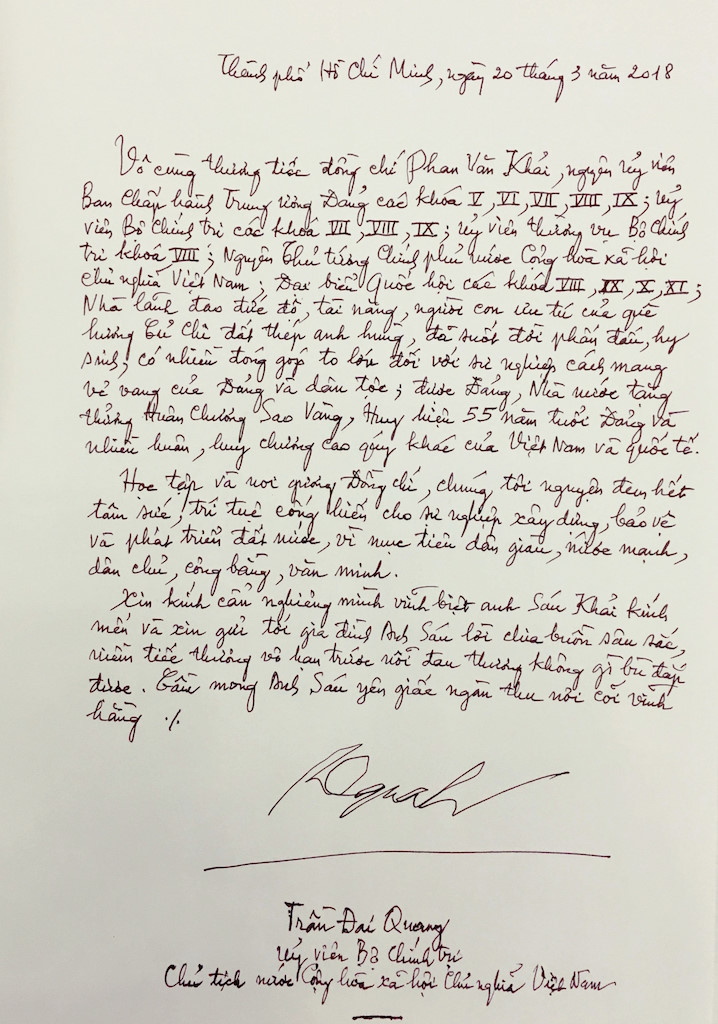 Thành phố Hồ Chí Minh, ngày 20 tháng 3 năm 2018
Vô cùng thương tiếc đồng chí Phan Văn Khải, nguyên Uỷ viên
Ban Chấp hành Trung ương Đảng các khóa V, VI, VII, VIII, IX; Uỷ
viên Bộ Chính trị các khoá VII, VIII, IX; Uỷ viên thường vụ Bộ Chính
trị khoá VIII; Nguyên Thủ tướng Chính phủ nước Cộng hòa xã hội
Chủ nghĩa Việt Nam; Đại biểu Quốc hội các khoá VIII, IX, X, XI;
Nhà lãnh đạo đức độ, tài năng, người con ưu tú của quê
hương Củ Chi đất thép anh hùng, đã suốt đời phấn đấu, hy
sinh, có nhiều đóng góp to lớn đối với sự nghiệp cách mạng
vẻ vang của Đảng và dân tộc; được Đảng, Nhà nước tặng
thưởng Huân chương Sao Vàng, Huy hiệu 55 năm tuổi Đảng và
nhiều huân, huy chương cao quý khác của Việt Nam và quốc tế.
Học tập và noi gương Đồng chí, chúng tôi nguyện đem hết
tâm sức, trí tuệ cống hiến cho sự nghiệp xây dựng, bảo vệ
và phát triển đất nước, vì mục tiêu dân giàu, nước mạnh,
dân chủ, công bằng, văn minh.
Xin kính cẩn nghiêng mình vĩnh biệt anh Sáu Khải kính
mến và xin gửi tới gia đình Anh Sáu lời chia buồn sâu sắc,
niềm tiếc thương vô hạn trước nỗi đau thương không gì bù đắp
được. Cầu mong Anh Sáu yên giấc ngàn thu nơi cõi vĩnh
hằng ./.
Trần Đại Quang
Uỷ viên Bộ Chính trị
Chủ tịch nước Cộng hòa xã hội Chủ nghĩa Việt Nam